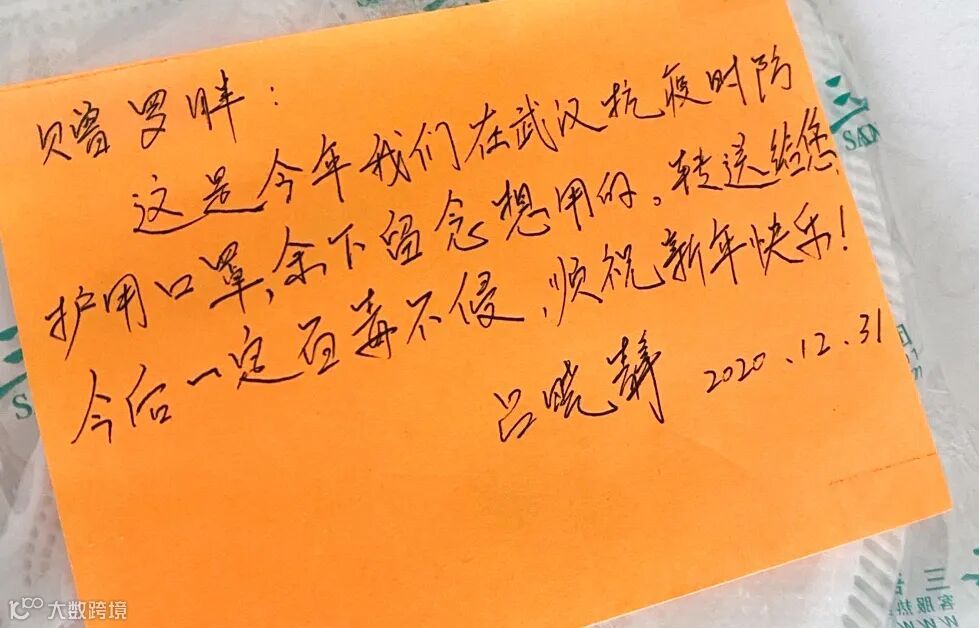 赠罗胖：
这是今年我们在武汉抗疫时防
护用口罩，余下留念想用的。转送给您，
今后一定百毒不侵，顺祝新年快乐！
吕晓静 2020.12.31
三
SAN
客服热
WWW
大数跨境